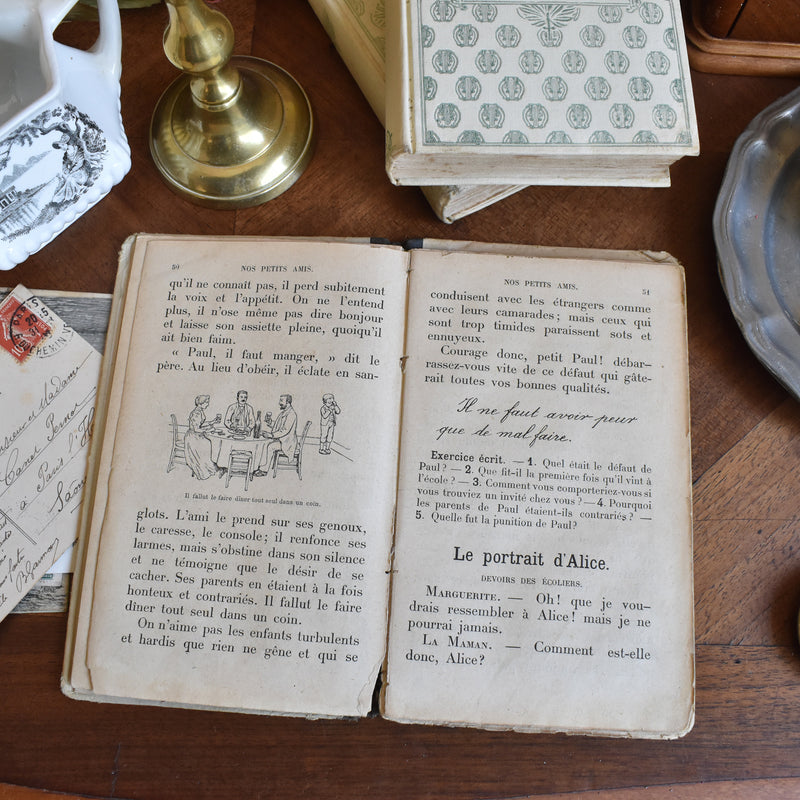 50 NOS PETITS AMIS.
qu'il ne connaît pas, il perd subitement
la voix et l'appétit. On ne l'entend
plus, il n'ose même pas dire bonjour
et laisse son assiette pleine, quoiqu'il
ait bien faim.
« Paul, il faut manger, » dit le
père. Au lieu d'obéir, il éclate en san-
Il fallut le faire dîner tout seul dans un coin.
glots. L'ami le prend sur ses genoux,
le caresse, le console ; il renfonce ses
larmes, mais s'obstine dans son silence
et ne témoigne que le désir de se
cacher. Ses parents en étaient à la fois
honteux et contrariés. Il fallut le faire
dîner tout seul dans un coin.
On n'aime pas les enfants turbulents
et hardis que rien ne gêne et qui se
NOS PETITS AMIS. 51
conduisent avec les étrangers comme
avec leurs camarades ; mais ceux qui
sont trop timides paraissent sots et
ennuyeux.
Courage donc, petit Paul ! débar-
rassez-vous vite de ce défaut qui gâte-
rait toutes vos bonnes qualités.
Il ne faut avoir peur
que de mal faire.
Exercice écrit. — 1. Quel était le défaut de
Paul ? — 2. Que fit-il la première fois qu'il vint à
l'école ? — 3. Comment vous comporteriez-vous si
vous trouviez un invité chez vous ? — 4. Pourquoi
les parents de Paul étaient-ils contrariés ? —
5. Quelle fut la punition de Paul ?
Le portrait d'Alice.
DEVOIRS DES ÉCOLIERS.
MARGUERITE. — Oh ! que je vou-
drais ressembler à Alice ! mais je ne
pourrai jamais.
LA MAMAN. — Comment est-elle
donc, Alice ?
Madame
à Paris